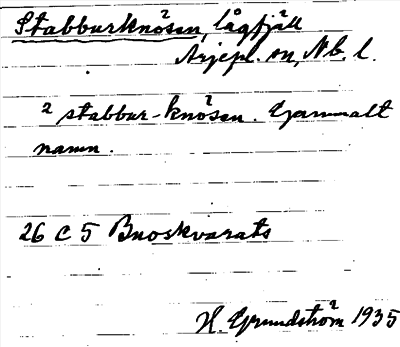 Stabburknösen, lågfjäll
Arjepl. sn, Nb. l.
² stabbur-knösen. Gammalt
namn.
26 C 5 Buoskvarats
H. Grundström 1935